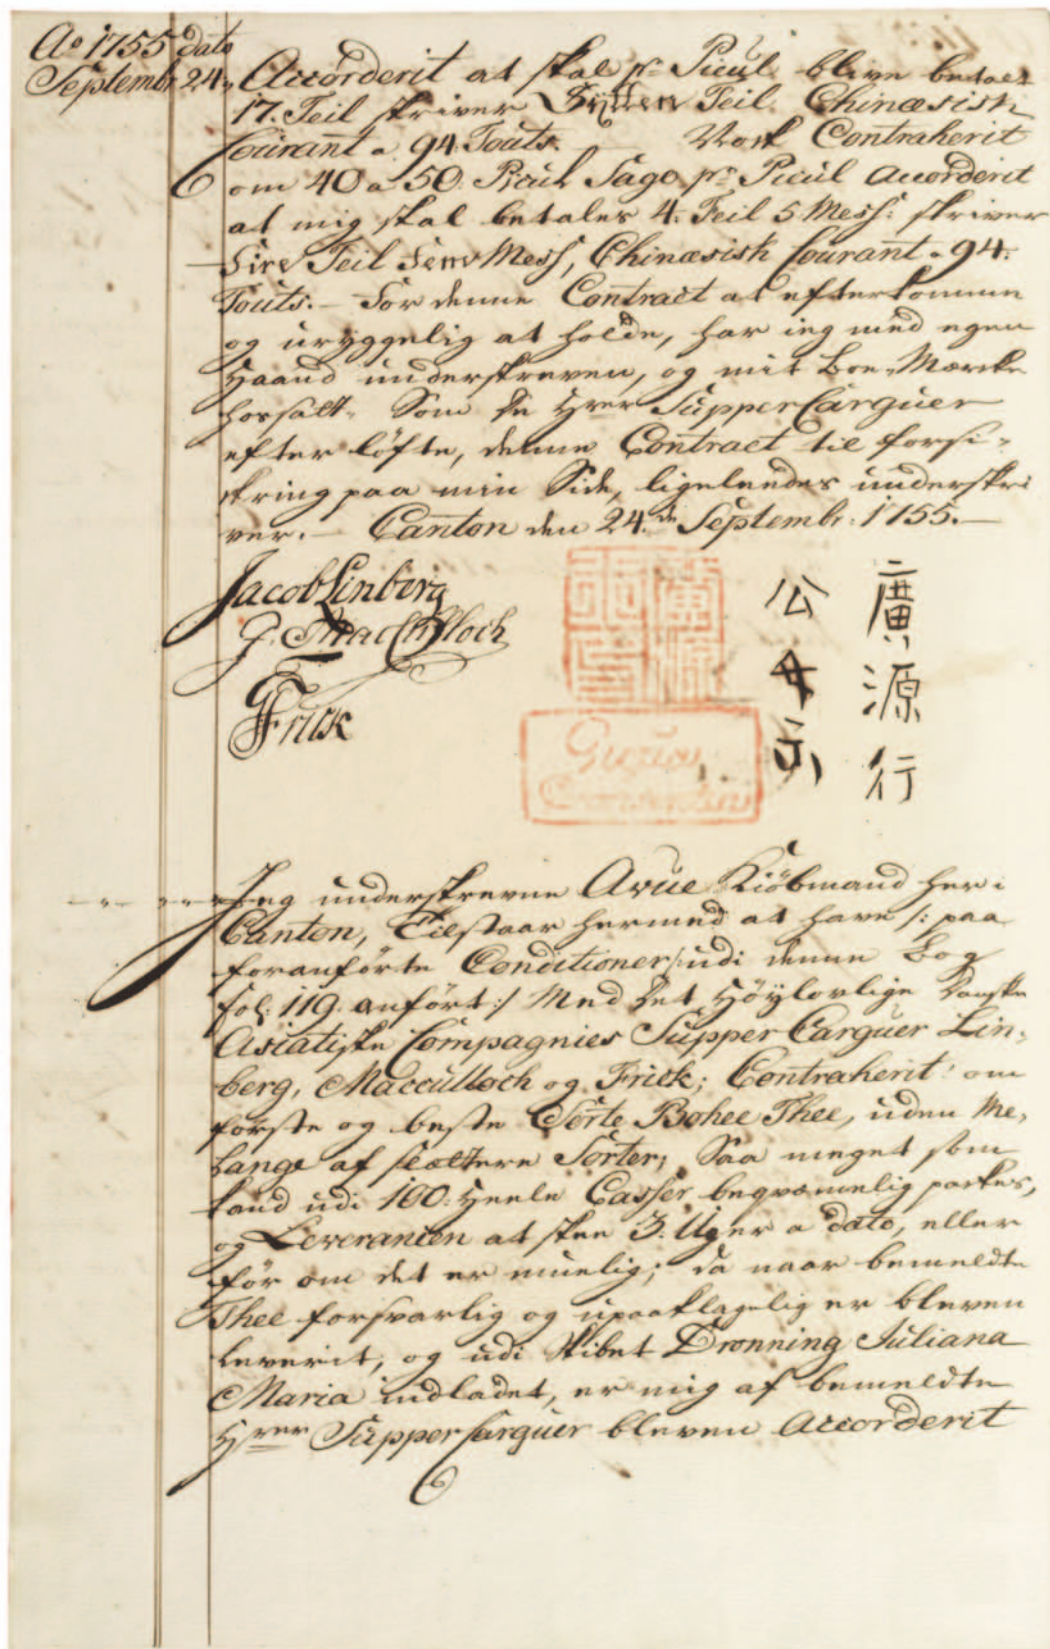 Ao 1755 dato
Septembr 24.
Accorderit at skal pr. Picul blive betalt
17. Teil skriver Sÿtten Teil Chinæsisk
Courant a 94 Touts. Contraherit
om 40 a 50. Picul Sago, pr. Picul Accorderit
at mig skal betales 4. Teil 5 Mess: skriver
Fire Teil Fem Mess, Chinæsisk Courant a 94.
Touts. – For denne Contract at efterkomme
og uryggelig at holde, har ieg med egen
Haand underskreven, og mit Boe-Mærke
hossatt. Som de Hrer Supper Carguer
efter løfte, denne Contract til forsi-
kring paa min Side, ligeleedes underskri
ver. – Canton den 24de Septembr: 1755. –
Jacob Linberg
G. MacCulloch
Frick
廣源行
公
Jeg underskrevne Avue Kiöbmand her i
Canton, Tilstaar hermed at have /: paa
foranførte Conditioner, udi denne Bog
fol: 119. anført :/ Med Det Höÿlovlige Danske
Asiatiske Compagnies Supper Carguer Lin-
berg, Macculloch og Frick; Contraherit om
første og beste Sorte Bohee Thee, uden Me-
lange af slættere Sorter, Saa meget som
kand udi 100. Heele Casser beqvemmelig pakkes,
og Leverancen at skee 3. Uger a dato, eller
før om det er muelig; da naar bemeldte
Thee forsvarlig og upaaklagelig er bleven
leverit, og udi Skibet Dronning Juliana
Maria indladet, er mig af bemeldte
Hrer Supper Carguer bleven Accorderit